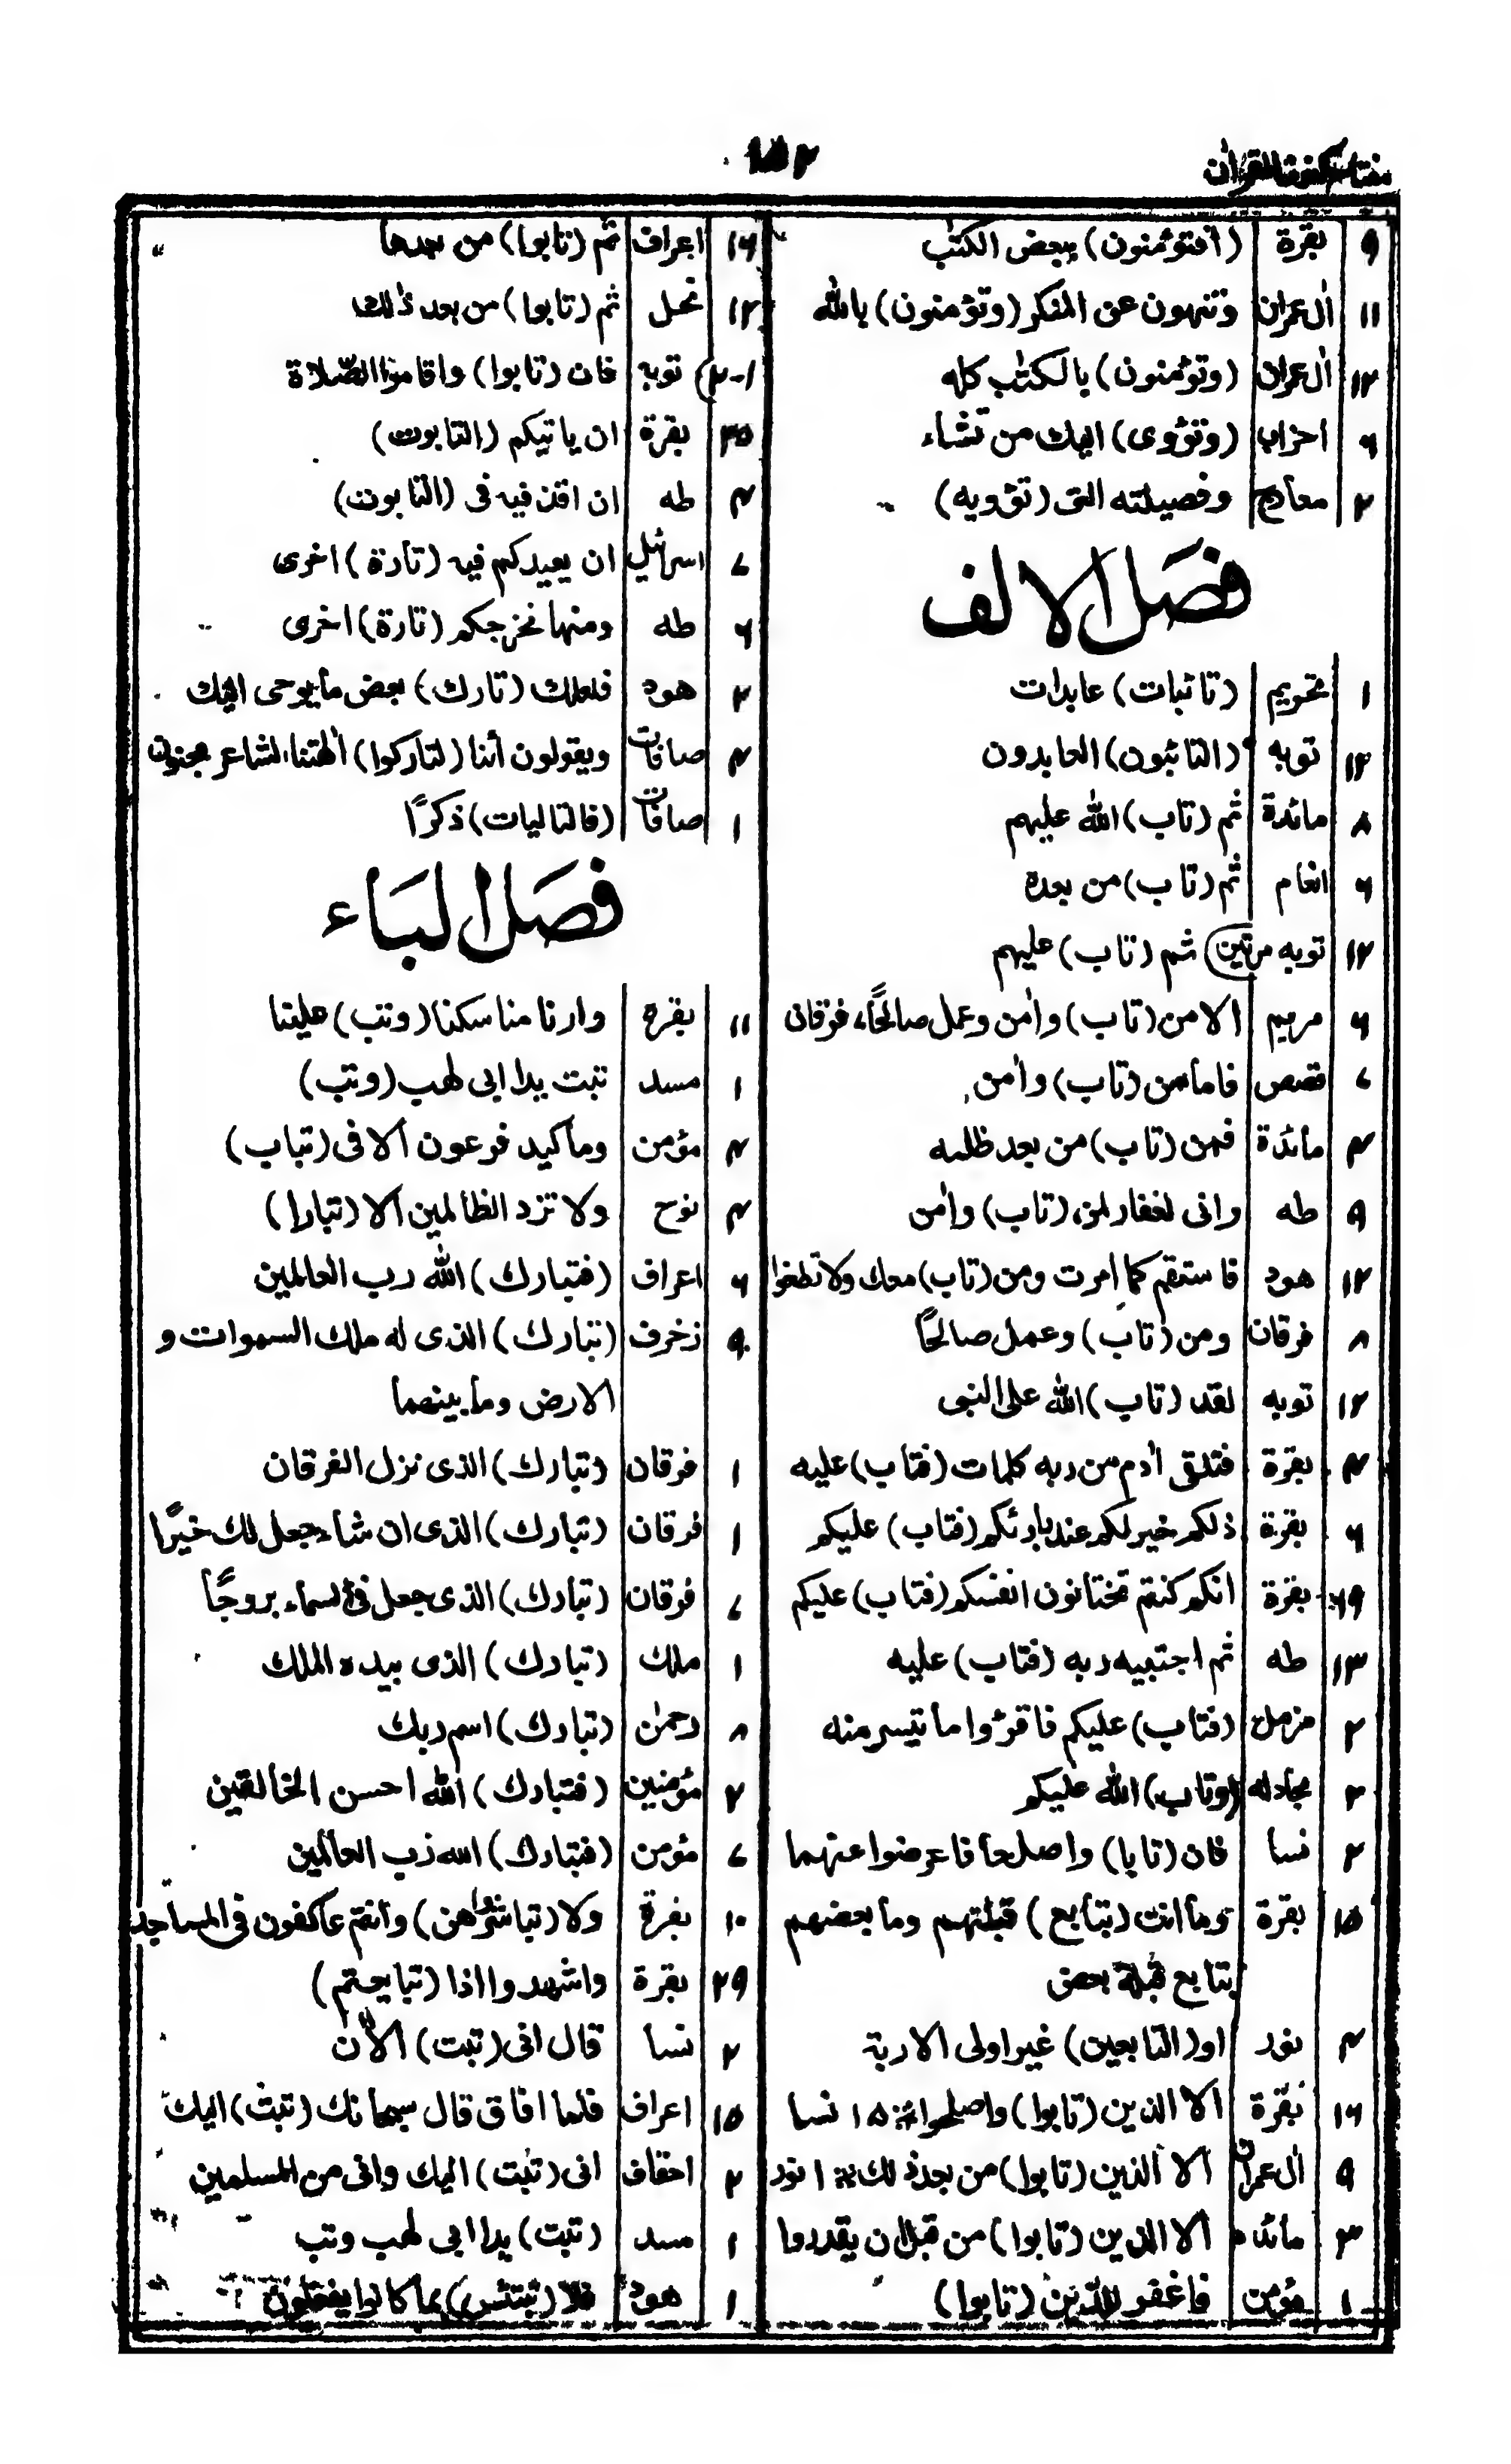 مفتاح كنوز القرآن
١٥٢
٩ بقرة (افتؤمنون) ببعض الكتٰب
١١ اٰل عمران وتنهون عن المنكر (وتؤمنون) بالله
١٢ اٰل عمران (وتؤمنون) بالكتٰب كله
٦ احزاب (وتؤوى) اليك من تشاء
٢ معارج وفصيلته التى (تؤويه)
فصَل الالف
١ تحريم (تائبات) عابدات
١٣ توبه (التائبون) العابدون
٨ مائدة ثم (تاب) الله عليهم
٦ انعام ثم (تاب) من بعده
١٢ توبه مرتين) ثم (تاب) عليهم
٦ مريم الا من (تاب) واٰمن وعمل صالحًا، فرقان
٧ قصص فاما من (تاب) واٰمن
٣ مائدة فمن (تاب) من بعد ظلمه
٩ طه وانى لغفار لمن (تاب) واٰمن
١٢ هود فاستقم كما امرت ومن (تاب) معك ولا تطغوا
٨ فرقان ومن (تاب) وعمل صالحًا
١٢ توبه لقد (تاب) الله على النبى
٣ بقرة فتلقى اٰدم من ربه كلمات (فتاب) عليه
٦ بقرة ذلكم خير لكم عند بارئكم (فتاب) عليكم
بقرة انكم كنتم تختانون انفسكم (فتاب) عليكم
١٣ طه ثم اجتبيه ربه (فتاب) عليه
٢ مزمل (فتاب) عليكم فاقرؤا ما تيسر منه
٢ مجادله (وتاب) الله عليكم
٢ نسا فان (تابا) واصلحا فاعرضوا عنهما
١٥ بقرة وما انت (بتابع) قبلتهم وما بعضهم
بتابع قبلة بعض
٣ نور او (التابعين) غير اولى الاربة
١٦ بقرة الا الذين (تابوا) واصلحوا ١٥ نسا
٩ اٰل عمران الا الذين (تابوا) من بعد ذلك ١ نور
٣ مائده الا الذين (تابوا) من قبل ان يقدروا
١ مؤمن فاغفر للذين (تابوا)
١٦ اعراف ثم (تابوا) من بعدها
١٢ نحل ثم (تابوا) من بعد ذٰلك
١-٢) توبه فان (تابوا) واقاموا الصّلاة
٣٥ بقرة ان ياتيكم (التابوت)
٣ طه ان اقذفيه فى (التابوت)
٧ اسرائيل ان يعيدكم فيه (تارة) اخرى
٦ طه ومنها نخرجكم (تارة) اخرى
٢ هود فلعلك (تارك) بعض ما يوحى اليك
٣ صافات ويقولون أئنا (لتاركوا) اٰلهتنا لشاعر مجنون
١ صافات (فالتاليات) ذكرًا
فصَل البَاء
١١ بقره وارنا مناسكنا (وتب) علينا
١ مسد تبت يدا ابى لهب (وتب)
٣ مؤمن وما كيد فرعون الا فى (تباب)
٣ نوح ولا تزد الظالمين الا (تبارا)
٦ اعراف (فتبارك) الله رب العالمين
٩ زخرف (تبارك) الذى له ملك السموات و
الارض وما بينهما
١ فرقان (تبارك) الذى نزل الفرقان
١ فرقان (تبارك) الذى ان شاء جعل لك خيرًا
٧ فرقان (تبارك) الذى جعل فى السماء بروجًا
١ ملك (تبارك) الذى بيده الملك
٨ رحمٰن (تبارك) اسم ربك
٢ مؤمنين (فتبارك) الله احسن الخالقين
٧ مؤمن (فتبارك) الله رب العالمين
١٠ بقرة ولا (تباشروهن) وانتم عاكفون فى المساجد
٢٩ بقرة واشهدوا اذا (تبايعتم)
٢ نسا قال انى (تبت) الاٰن
١٥ اعراف فلما افاق قال سبحانك (تبت) اليك
٢ احقاف انى (تبت) اليك وانى من المسلمين
١ مسد (تبت) يدا ابى لهب وتب
١ هود فلا (تبتئس) بما كانوا يفعلون